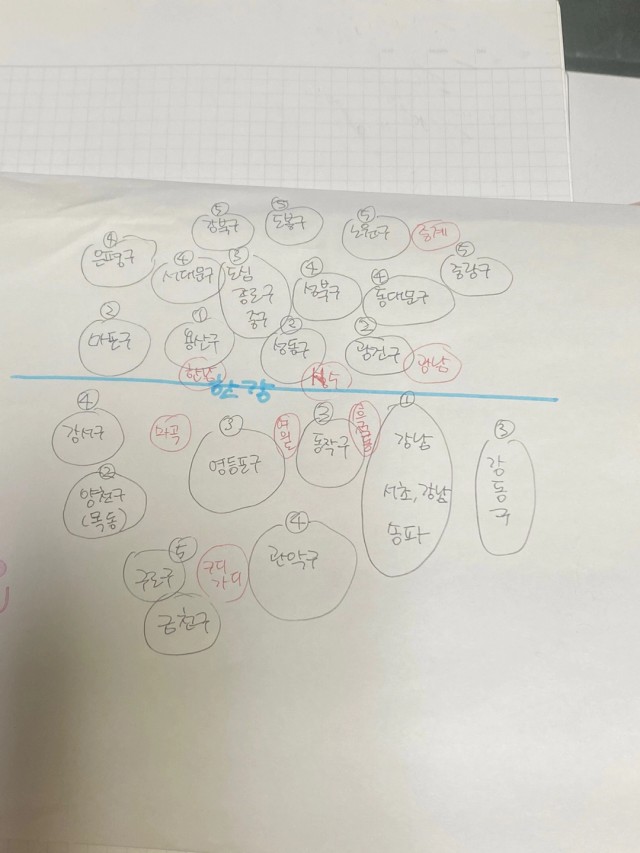 ⑤
강북구
⑤
도봉구
⑤
노원구
중계
④
은평구
④
서대문구
③
도심
종로구
중구
④
성북구
④
동대문구
⑤
중랑구
②
마포구
①
용산구
한남
②
성동구
성수
②
광진구
광남
한강
④
강서구
마곡
③
영등포구
여의도
③
동작구
흑석동
①
강남
서초, 강남
송파
③
강동구
②
양천구
(목동)
⑤
구로구
구디
가디
④
관악구
금천구